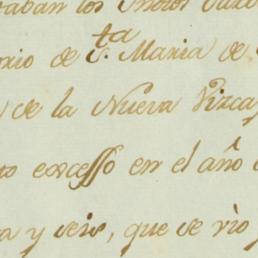 aban los
rio de S.ta Maria de
de la Nueva Vizca
to excesso en el año
a y seis, que se vio